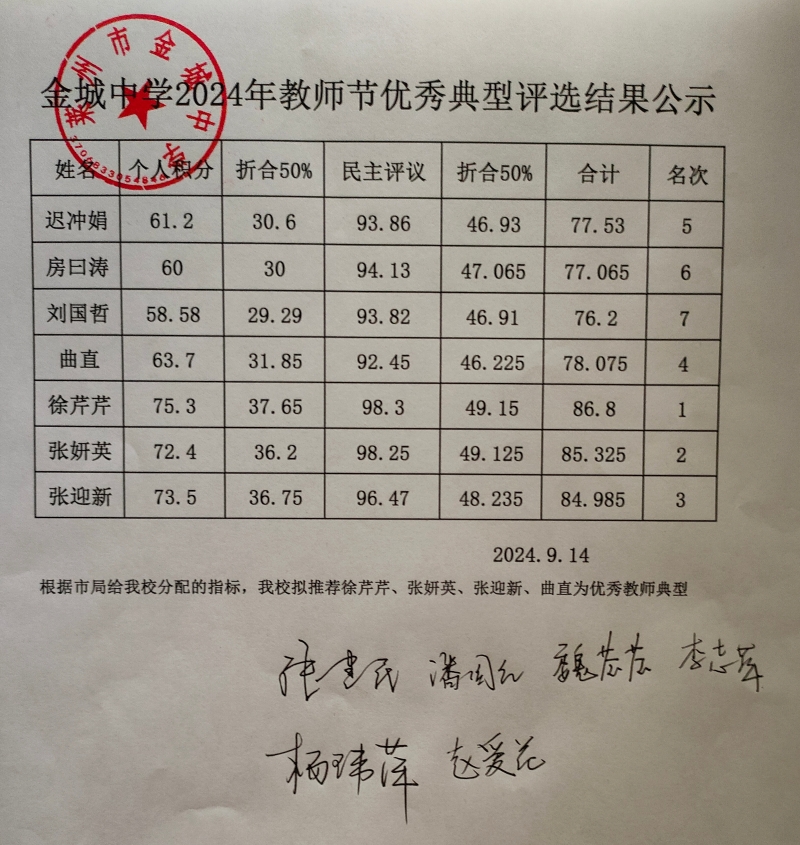 莱州市金城中学
金城中学2024年教师节优秀典型评选结果公示
姓名 个人积分 折合50% 民主评议 折合50% 合计 名次
迟冲娟 61.2 30.6 93.86 46.93 77.53 5
房曰涛 60 30 94.13 47.065 77.065 6
刘国哲 58.58 29.29 93.82 46.91 76.2 7
曲直 63.7 31.85 92.45 46.225 78.075 4
徐芹芹 75.3 37.65 98.3 49.15 86.8 1
张妍英 72.4 36.2 98.25 49.125 85.325 2
张迎新 73.5 36.75 96.47 48.235 84.985 3
2024.9.14
根据市局给我校分配的指标，我校拟推荐徐芹芹、张妍英、张迎新、曲直为优秀教师典型
张建民 潘国红 李志萍
杨玮萍 赵爱花